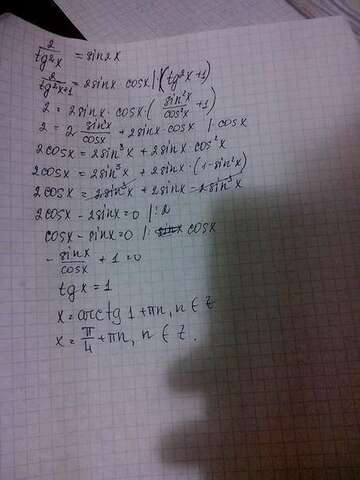 2/tg²x = sin2x
2/tg²x+1 = 2sinx · cosx |·(tg²x+1)
2 = 2sinx · cosx · (sin²x/cos²x + 1)
2 = 2 sin³x/cosx + 2sinx · cosx | · cosx
2cosx = 2sin³x + 2sinx · cos²x
2cosx = 2sin³x + 2sinx · (1-sin²x)
2cosx = 2sin³x + 2sinx - 2sin³x
2cosx - 2sinx = 0 |:2
cosx - sinx = 0 |: cosx
- sinx/cosx + 1 = 0
tg x = 1
x = arctg 1 + πn, n ∈ z
x = π/4 + πn, n ∈ z.